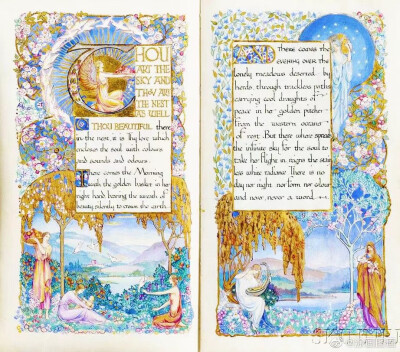 THOU
ART THE
SKY AND
THOU ART
THE NEST
AS WELL.
O THOU BEAUTIFUL there
in the nest it is thy love which
encloses the soul with colours
and sounds and odours.
There comes the Morning
with the golden basket in her
right hand bearing the wreath of
beauty silently to crown the earth.
AND
there comes the
evening over the
lonely meadows deserted by
herds through trackless paths
carrying cool draughts of
peace in her golden pitcher
from the western ocean
of rest. But there where spreads
the infinite sky for the soul to
take her flight in reigns the stain
less white radiance. There is no
day nor night nor form nor colour
and never never a word.